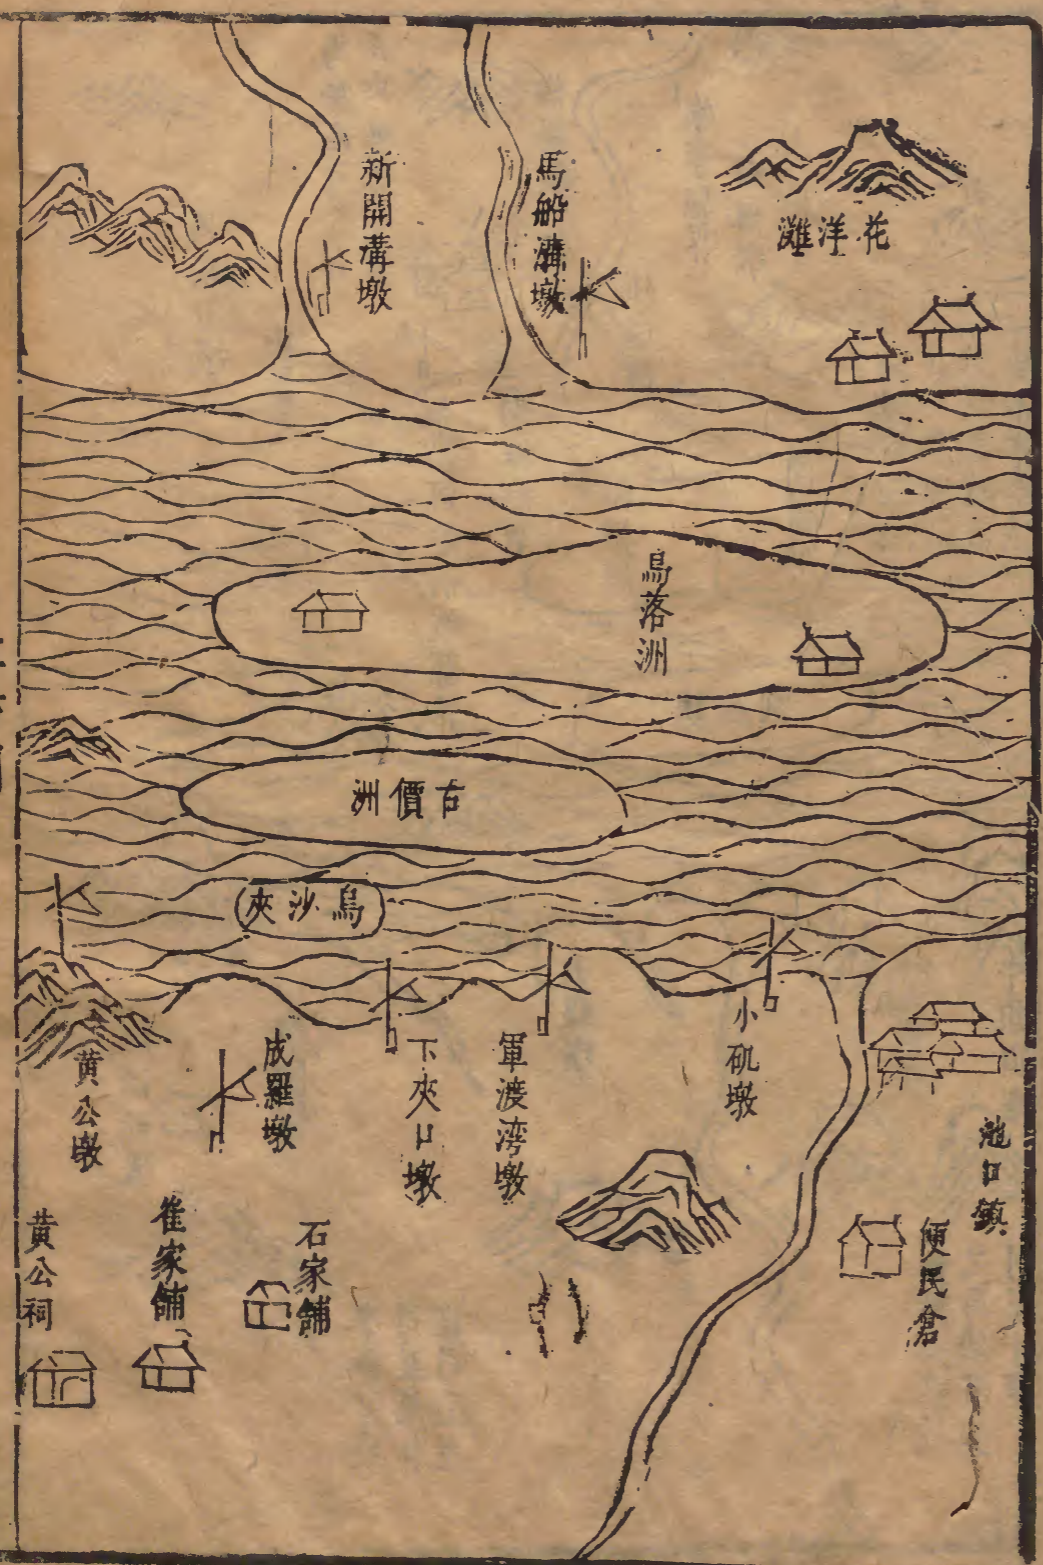 花洋灘
馬船溝墩
新開溝墩
烏落洲
古價洲
烏沙夾
小磯墩
軍渡湾墩
下夾口墩
成羅墩
黄公墩
池口鎮
便民倉
石家舖
崔家舖
黄公祠